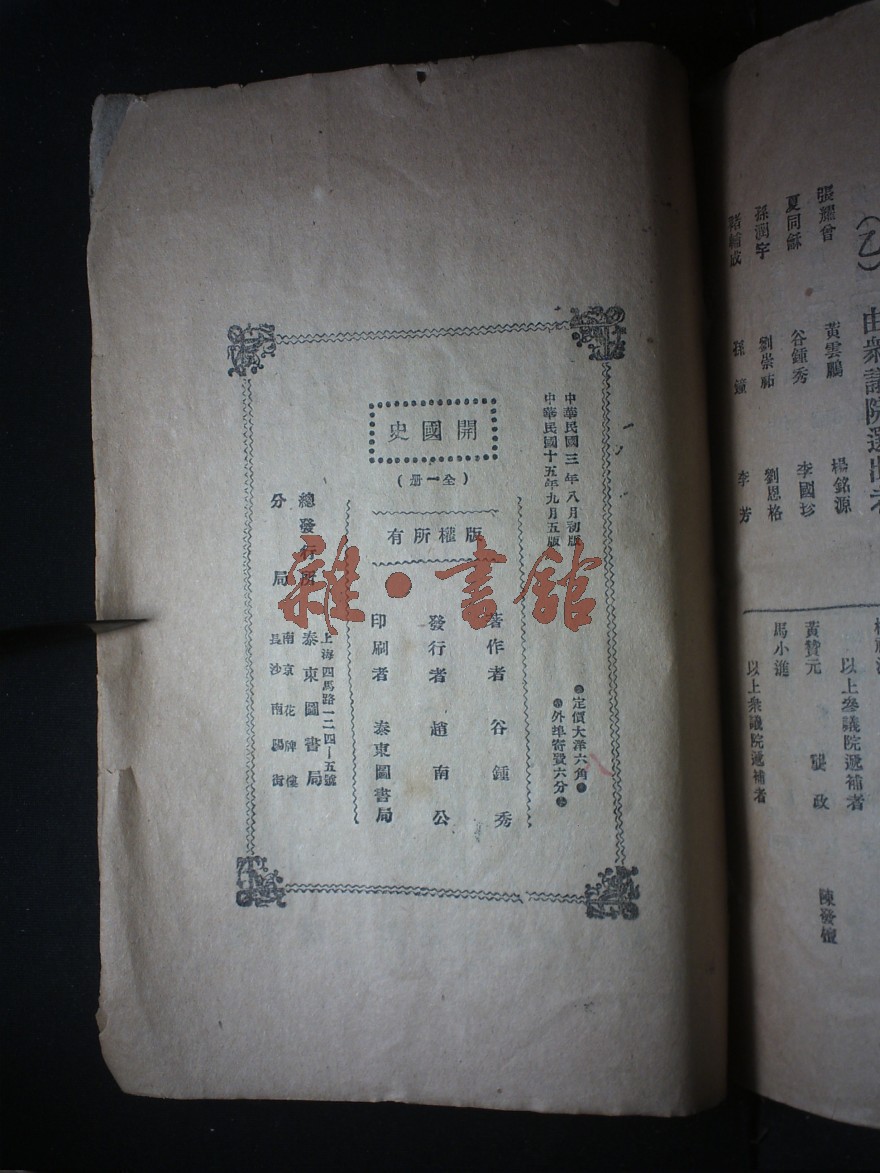 (乙) 由衆議院選出者
張耀曾 黃雲鵬 楊銘源
夏同龢 谷鍾秀 李國珍
孫潤宇 劉崇祐 劉恩格
褚輔成 孫鐘 李芳
陳發檀
以上參議院遞補者
黃贊元 龔政
馬小進
以上衆議院遞補者
中華民國三年八月初版
中華民國十五年九月五版
定價大洋六角
外埠寄費六分
開國史
(全一册)
版權所有
著作者 谷鍾秀
發行者 趙南公
印刷者 泰東圖書局
上海四馬路一二四—五號
總發行所 泰東圖書局
分局 南京花牌樓
長沙南陽街
雜·書館